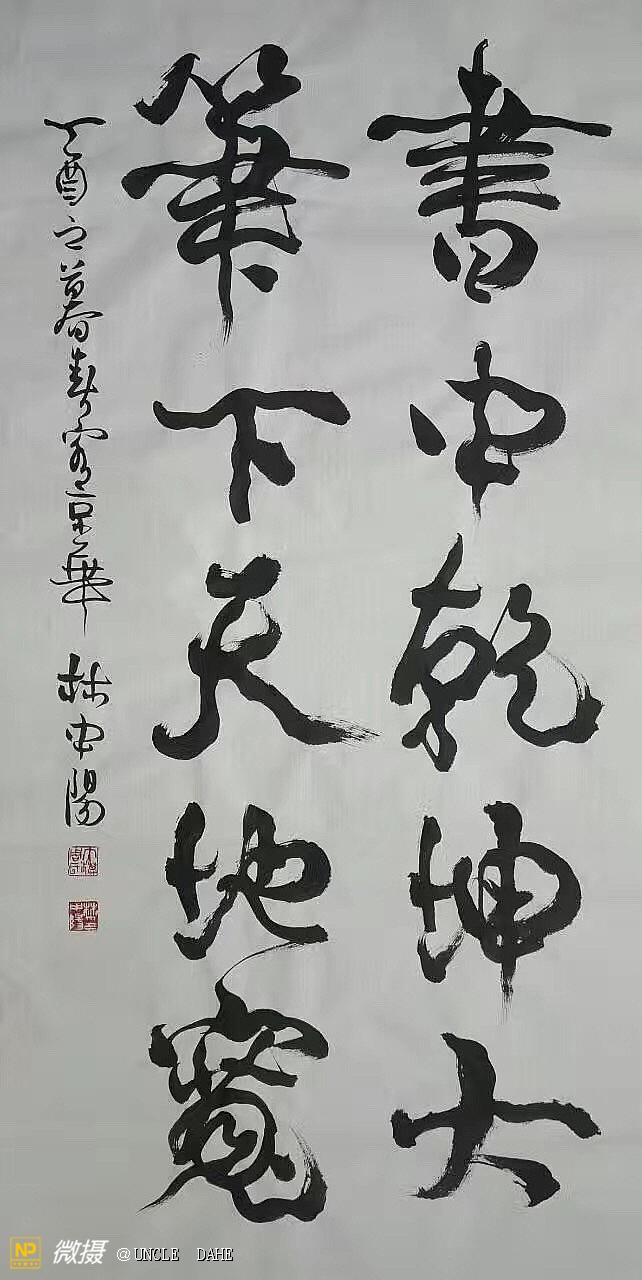 書中乾坤大
筆下天地寬
丁酉之暮春客京華 林中陽
NP 微摄 @UNCLE DAHE